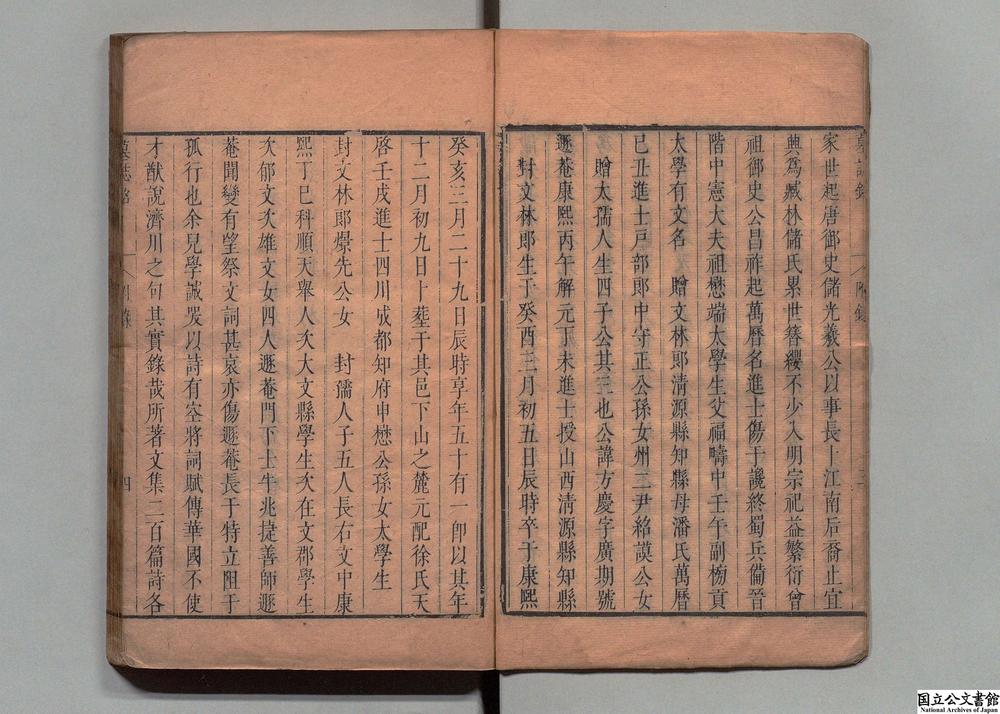 家世起唐御史儲光羲公以事長上江南后裔止宜
興爲臧林儲氏累世簪纓不少入明宗祀益繁衍曾
祖御史公昌祚起萬曆名進士傷于讒終蜀兵備晉
階中憲大夫祖懋端太學生父福疇中壬午副榜貢
太學有文名　贈文林郎清源縣知縣母潘氏萬曆
己丑進士戶部郎中守正公孫女州三尹紹謨公女
贈太孺人生四子公其三也公諱方慶字廣期號
遯菴康熙丙午解元丁未進士授山西清源縣知縣
封文林郎生于癸酉三月初五日辰時卒于康熙
癸亥三月二十九日辰時享年五十有一卽以其年
十二月初九日卜葬于其邑下山之麓元配徐氏天
啓壬戌進士四川成都知府申懋公孫女太學生
封文林郎㬌先公女　封孺人子五人長右文中康
熙丁巳科順天舉人次大文縣學生次在文郡學生
次郁文次雄文女四人遯菴門下士牛兆捷善師遯
菴聞變有望祭文詞甚哀亦傷遯菴長于特立阻于
孤行也余兄學誠哭以詩有空將詞賦傳華國不使
才猷說濟川之句其實錄哉所著文集二百篇詩各
墓誌銘
附錄
四
国立公文書館
National Archives of Japan